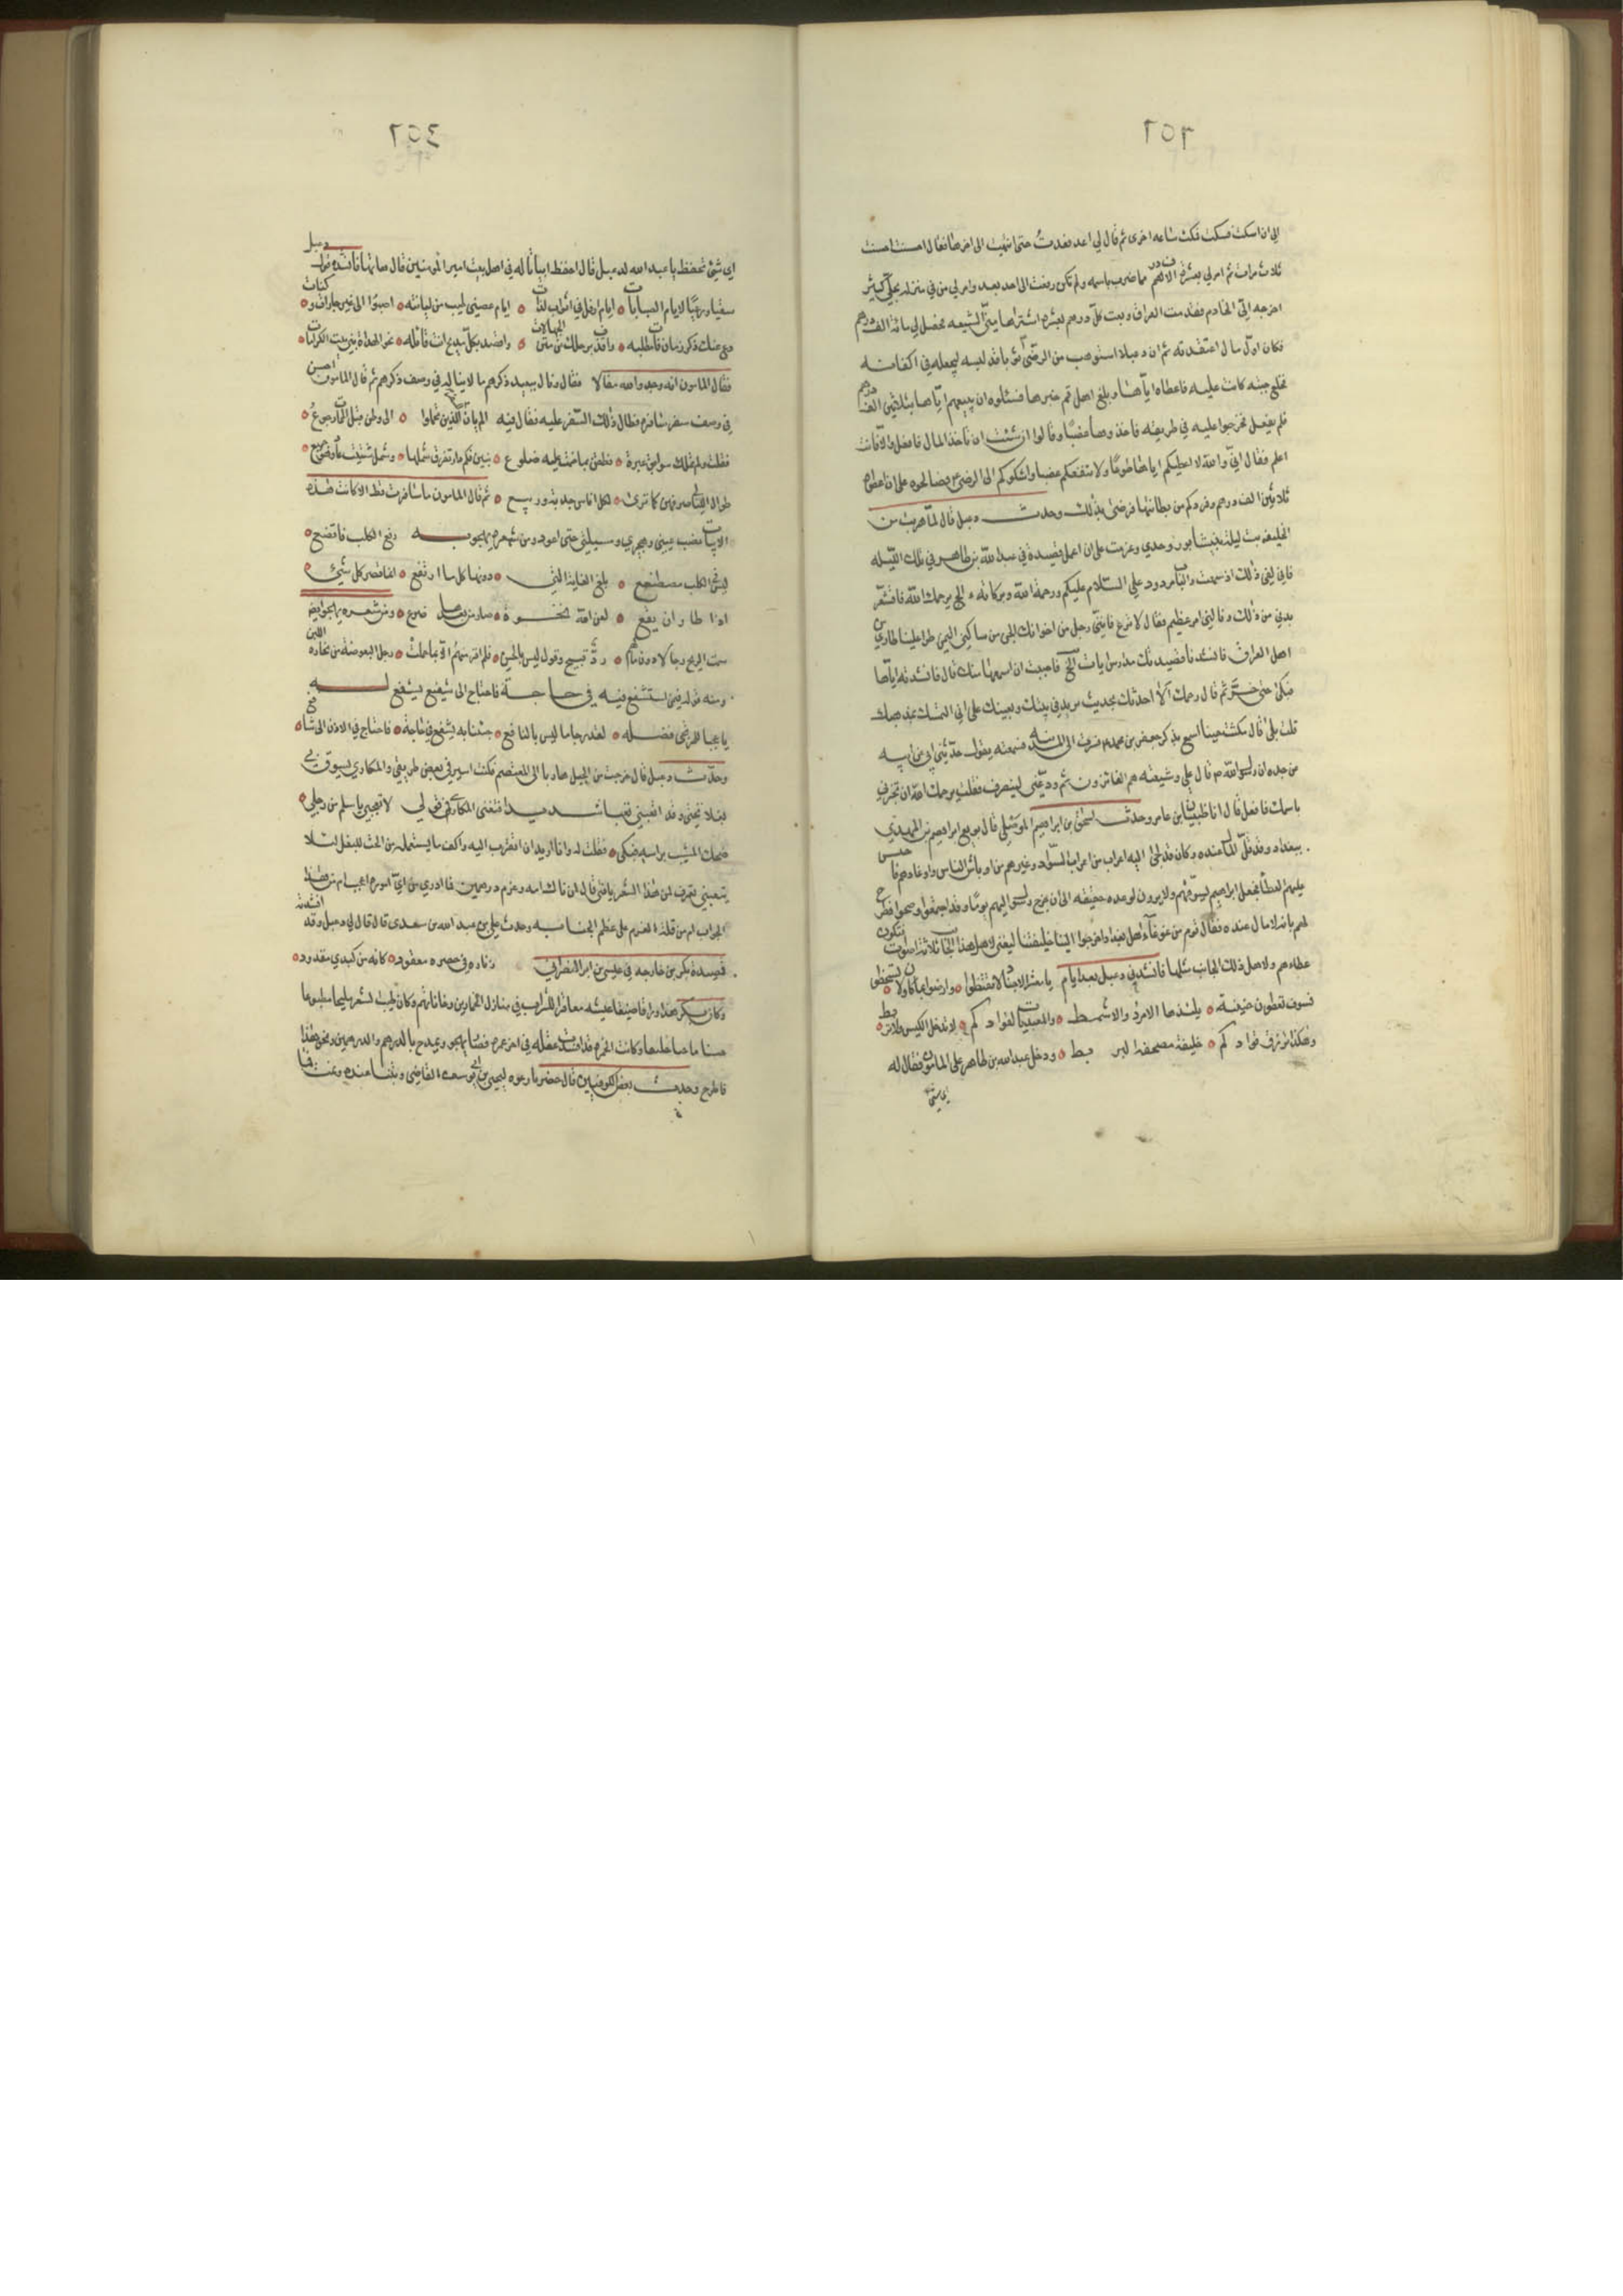 الي ان اسكت فسكت فمكث ساعه اخرى ثم قال لي اعد فعدت حتى انتهيت الى اخرها فقال احسنت احسنت
ثلاث مرات ثم امر لي بعشرة الاف درهم مما ضرب باسمه ولم تكن رفعت الى احد بعد وامر لي من في منزله بحلي كثير
اخرجه الي الخادم فقدمت العراق وبعت كل درهم بعشرة اشتراها مني الشيعه فحصل لي مائة الف درهم
فكان اول مال اعتقدته ثم ان دعبلا استوهب من الرضى ثوبا قد لبسه ليجعله في اكفانه
فخلع جبه كانت عليه فاعطاه اياها وبلغ اهل قم خبرها فسئلوه ان يبيعهم اياها بثلثين الف درهم
فلم يفعل فخرجوا عليه في طريقه فاخذوها غصبا وقالوا ان شئت ان تاخذ المال فافعل والا فانت
اعلم فقال اني والله لا اعطيكم اياها طوعا ولا تنفعكم غصبا واشكوكم الى الرضى فصالحوه على ان اعطوه
ثلاثين الف درهم وفرد كم من بطانتها فرضي بذلك وحدث دعبل قال لما هربت من
الخليفه بت ليلة بنيشابور وحدي وعزمت على ان اعمل قصيدة في عبد الله بن طاهر في تلك الليله
فاني لفي ذلك اذ سمعت والباب مردود علي السلام عليكم ورحمة الله وبركاته الج يرحمك الله فاقشعر
بدني من ذلك ونالني امر عظيم فقال لا ترع فاني رجل من اخوانك الجن من ساكني اليمن طرا علينا طاري من
اهل العراق فانشدنا قصيدتك مدارس ايات الخ فاحببت ان اسمعها منك قال فانشدته اياها
فبكى حتى خر ثم قال رحمك الله الا احدثك بحديث يزيد في نيتك ويعينك على التمسك بمذهبك
قلت بلى قال مكثت حينا اسمع بذكر جعفر بن محمد فصرت الى المدينه فسمعته يقول حدثني ابي عن ابيه
عن جده ان رسول الله قال علي وشيعته هم الفائزون ثم ودعني لينصرف فقلت يرحمك الله ان تخبرني
باسمك فافعل قال انا ظبيان بن عامر وحدث اسحق بن ابراهيم الموصلي قال بويع ابراهيم بن المهدي
ببغداد وقد قل المال عنده وكان قد لجئ اليه اعراب من اعراب السواد وغيرهم من اوباش الناس واوغادهم فاحتبس
عليهم العطا فجعل ابراهيم يسوفهم ولا يرون لوعده حقيقه الى ان خرج رسوله اليهم يوما وقد اجتمعوا وضجوا فصرح
لهم بانه لا مال عنده فقال قوم من غوغاء اهل بغداد اخرجوا الينا خليفتنا ليغني لاهل هذا الجانب ثلاثة اصوات فتكون
عطاءهم ولاهل ذلك الجانب مثلها فانشدني دعبل بعد ايام يا معشر الاجناد لا تقنطوا وارضوا بما كان ولا تسخطوا
فسوف تعطون حنينية يلتذها الامرد والاشمط والمعبديات لقوادكم لا تدخل الكيس ولا تربط
وهكذا يرزق قوادكم خليفة مصحفه البربط ودخل عبد الله بن طاهر على المامون فقال له
اي شيئ
اي شيئ تحفظ يا عبد الله لدعبل قال احفظ ابياتا له في اهل بيت امير المومنين قال هاتها فانشده قول دعبل
سقيا ورعيا لايام الصبابات ايام ارفل في اثواب لذاتي ايام غصني رطيب من ليانته اصبوا الى غير جارات وكنات
دع عنك ذكر زمان فات مطلبه واقذف برجلك عن متن الجهالات واقصد بكل مديح انت قائله نحو الهداة بني بيت الكرامات
فقال المامون انه وجد والله مقالا فقال ونال ببعيد ذكرهم ما لا يناله في وصف ذكرهم ثم قال المامون احسن
في وصف سفر سافره فطال ذلك السفر عليه فقال فيه الم يان للسفر الذين تحملوا الى وطن قبل الممات رجوع
فقلت ولم املك سوابق عبرة نطقن بما ضمت عليه ضلوع تبين فكم دار تفرق شملها وشمل شتيت عاد وهو جميع
طوال الليالي صرفهن كما ترى لكل اناس جدبة وربيع ثم قال المامون ما سافرت قط الا كانت هذه
الابيات نصب عيني وهجيري ومسليتي حتى اعود ومن شعره يهجو به رفع الكلب فاتضع
ليس في الكلب مصطنع بلغ الغاية التي دونها كل ما ارتفع انما قصر كل شيئ
اذا طار ان يقع لعن الله نخوة صار من بعدها ضرع ومن شعره
ومنه قوله فيمن استشفع فيه في حاجة فاحتاج الى شفيع يشفع له
يا عجبا للمرتجى فضله لقد رجا ما ليس بالنافع جئنا به يشفع في حاجة فاحتاج في الاذن الى شافع
وحدث دعبل قال خرجت من الجبل هاربا الى المعتصم فكنت اسير في بعض طريقي والمكاري يسوق بي
بغلا تحتي وقد اتعبني تعبا شديدا فتغنى المكاري في قولي لا تعجبي يا سلم من رجل
ضحك المشيب براسه فبكى فقلت له وانا اريد ان اتقرب اليه واكف ما يستعمله من الحث للبغل لئلا
يتعبني تعرف لمن هذا الشعر يا فتى قال لمن ناك امه وغرم درهمين فما ادري من اي اموره اعجب ام من هذا
الجواب ام من قلة الغرم على عظم الجنايه وحدث علي بن عبد الله بن سعدى قال قال لي دعبل وقد انشدته
قصيدة بكر بن خارجه في عيسى بن البرا النصراني زناره في خصره معقود كانه من كبدي مقدود
وكان بكر هذا وراقا ضيقا عيشه معاقرا للشراب في منازل الخمارين وحاناتهم وكان طيب الشعر مليحا مطبوعا
حسنا ماجنا خليعا وكانت الخمره قد افسدت عقله في اخر عمره فصار يهجو ويمدح بالدرهم والدرهمين ونحو هذا
فاطرح وحدث بعض الكوفيين قال حضرنا دعوة ليحيى بن ابي يوسف القاضي وبتنا عنده ونمت فما